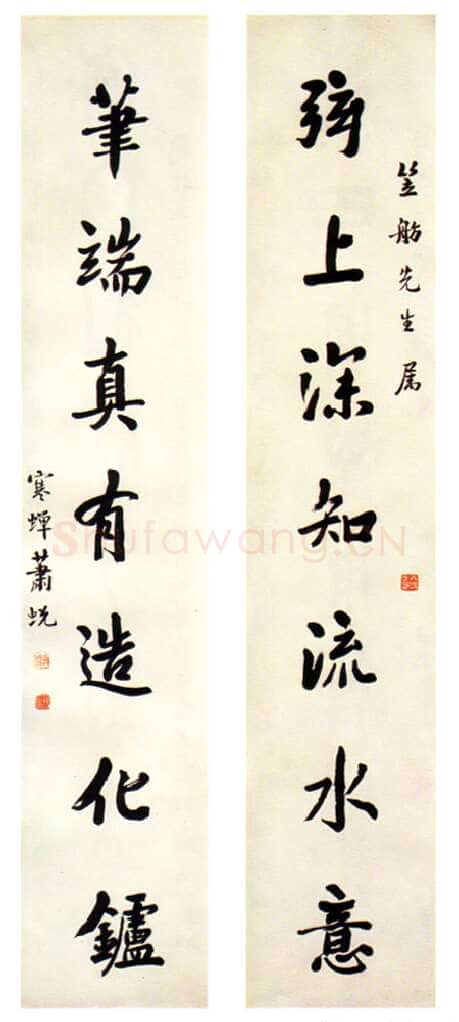 笠舫先生属
弦上深知流水意
筆端真有造化鑪
寒蟬蕭蜕
Shufawang.CN